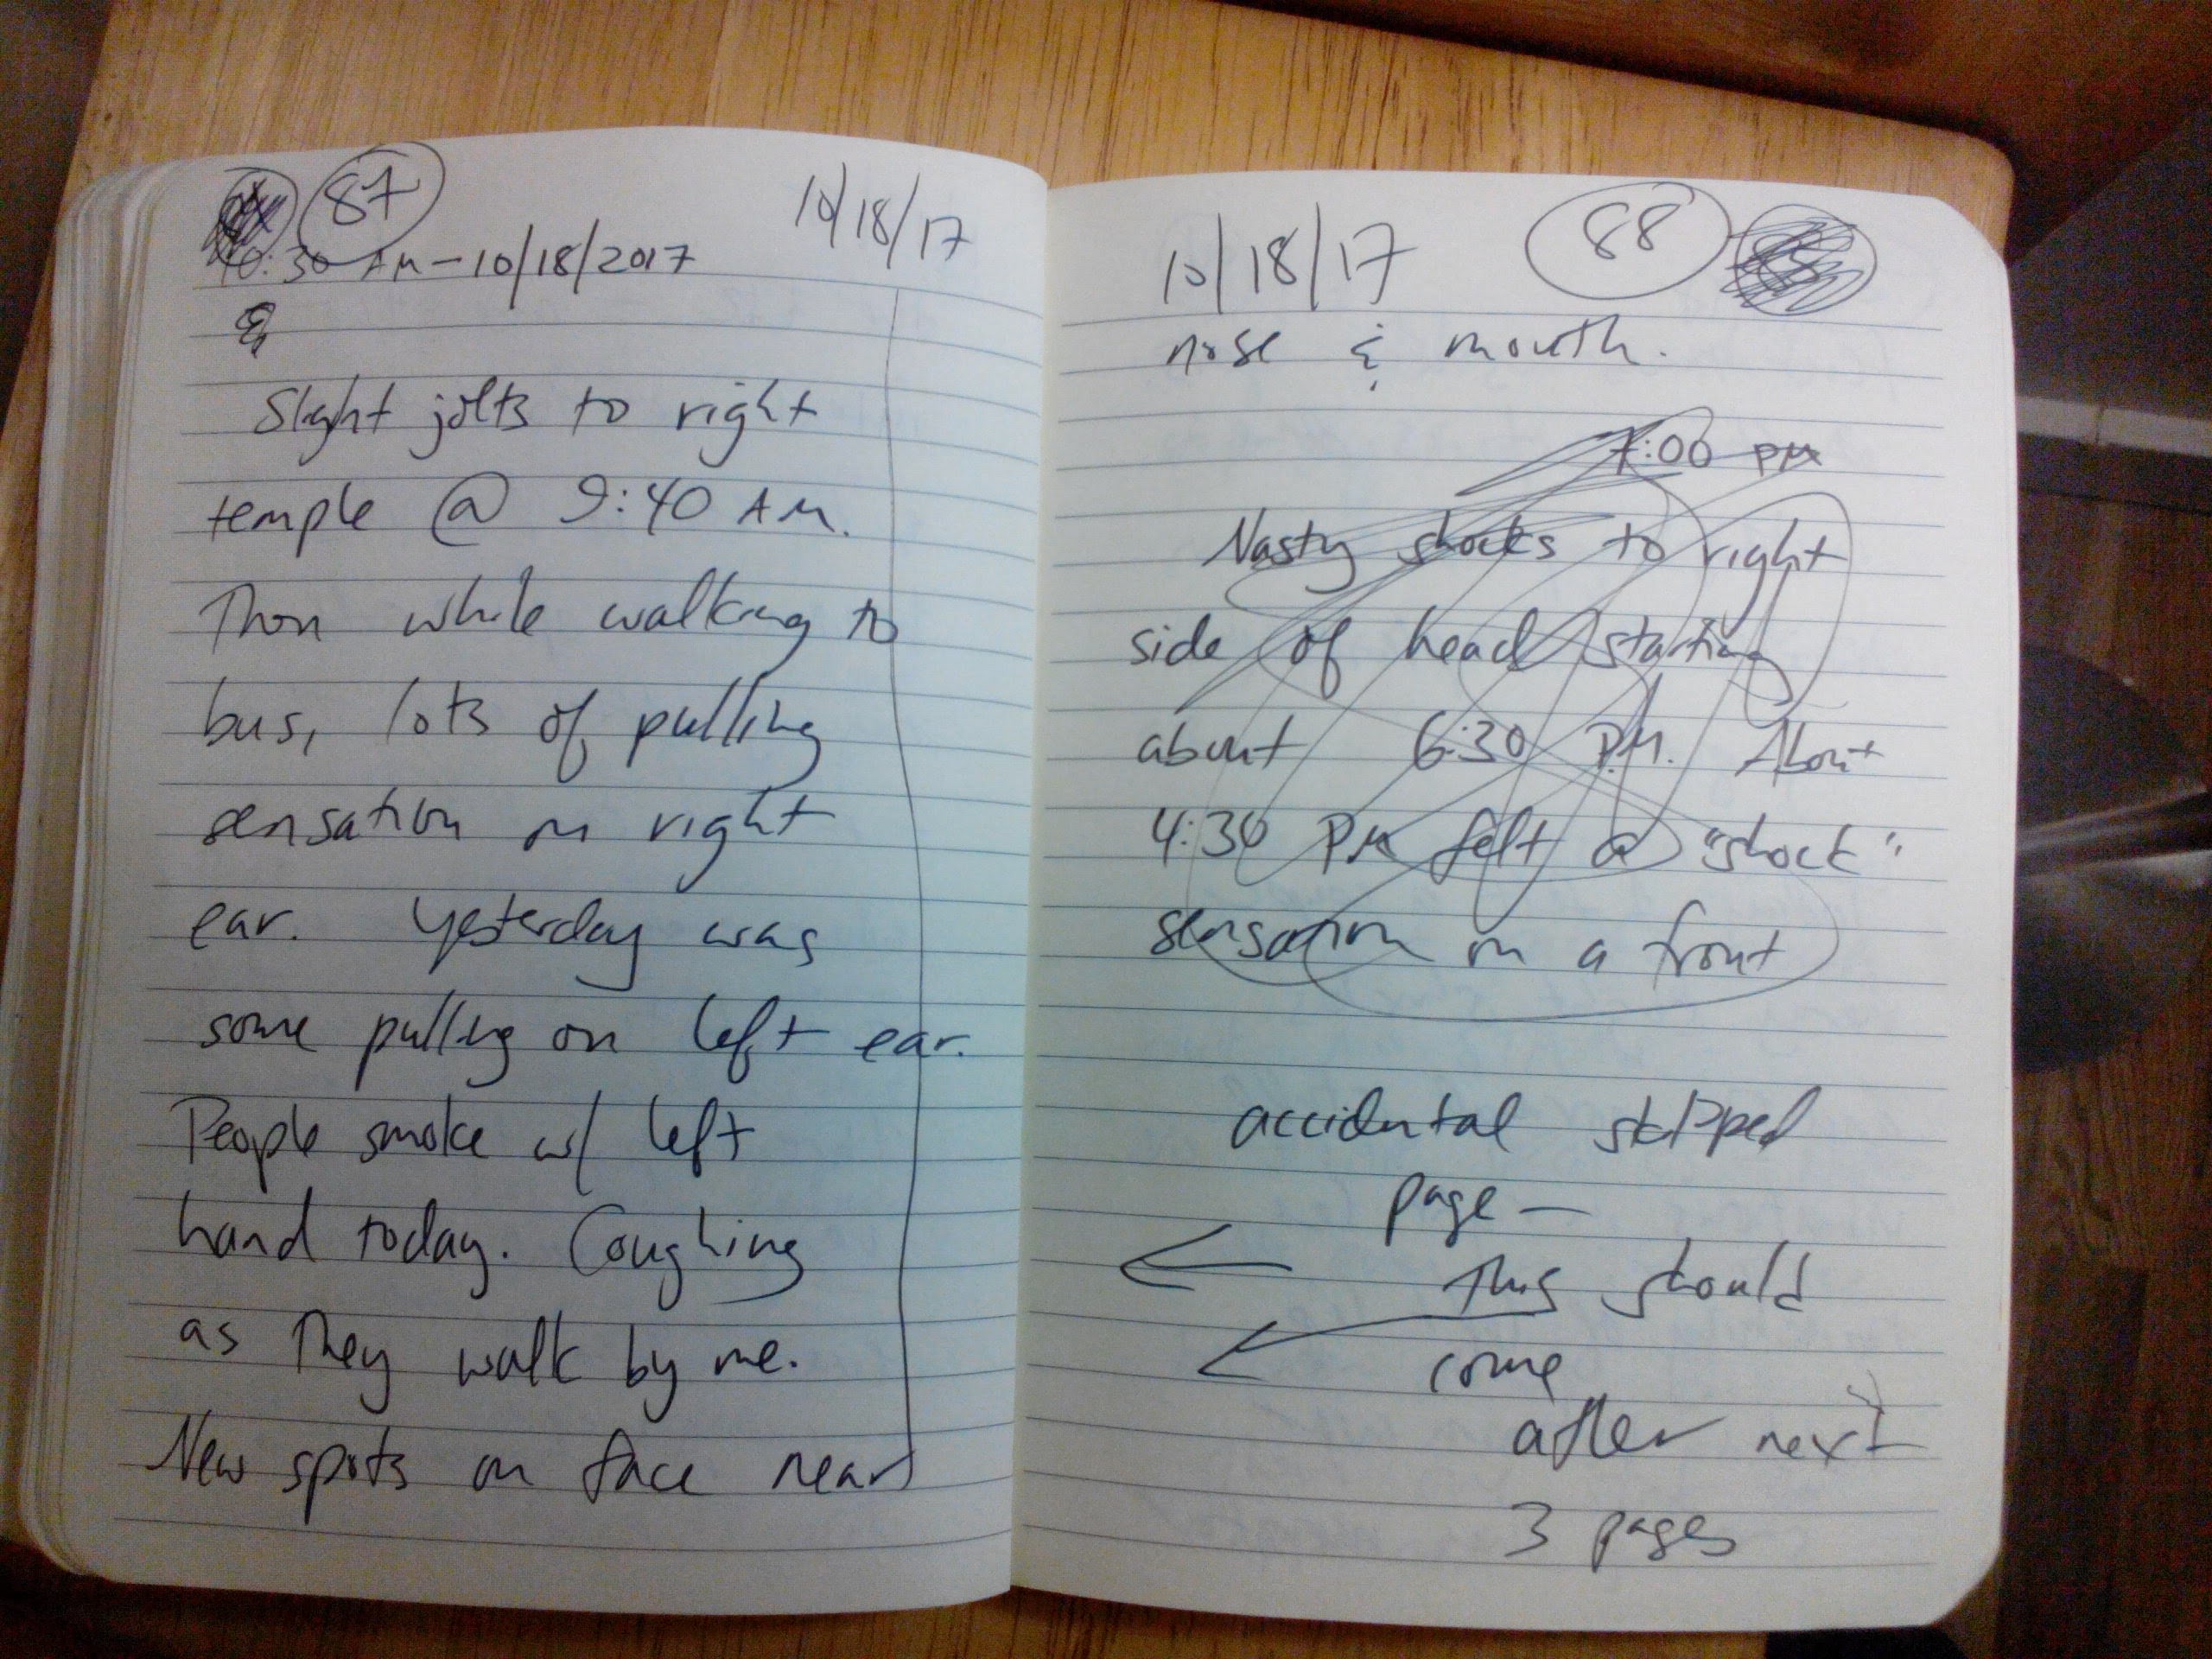 87
10/18/17
10:30 AM - 10/18/2017
Slight jolts to right
temple @ 9:40 AM.
Then while walking to
bus, lots of pulling
sensation on right
ear. Yesterday was
some pulling on left ear.
People smoke w/ left
hand today. Coughing
as they walk by me.
New spots on face near
10/18/17
88
nose & mouth.
7:00 PM
Nasty shocks to right
side of head starting
about 6:30 PM. About
4:30 PM felt a "shock"
sensation on a front
accidental skipped
page —
This should
come
after next
3 pages